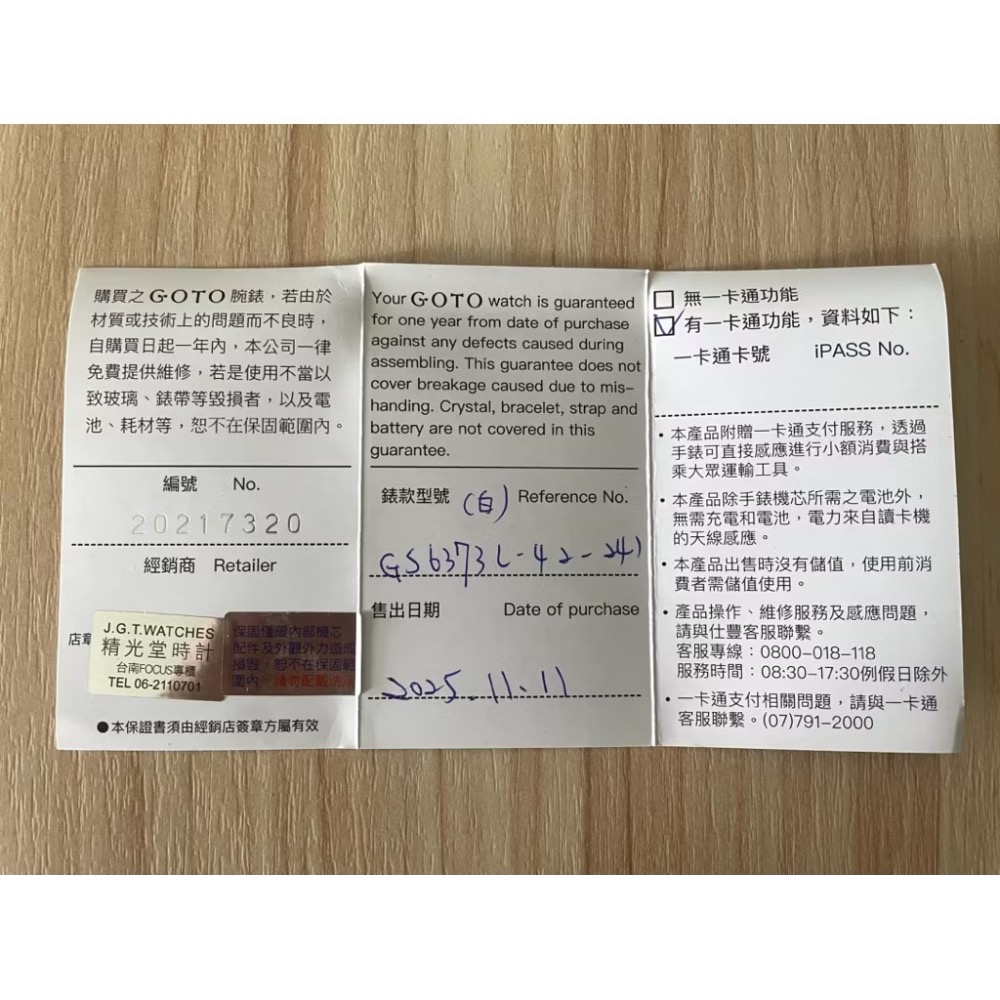 購買之 GOTO 腕錶，若由於
材質或技術上的問題而不良時，
自購買日起一年內，本公司一律
免費提供維修，若是使用不當以
致玻璃、錶帶等毀損者，以及電
池、耗材等，恕不在保固範圍內。
編號 No.
20217320
經銷商 Retailer
店章
J.G.T.WATCHES
精光堂時計
台南FOCUS專櫃
TEL 06-2110701
保固僅限內部機芯
配件及外觀外力造成
損毀，恕不在保固範
圍內。請勿配戴洗
●本保證書須由經銷店簽章方屬有效
Your GOTO watch is guaranteed
for one year from date of purchase
against any defects caused during
assembling. This guarantee does not
cover breakage caused due to mis-
handing. Crystal, bracelet, strap and
battery are not covered in this
guarantee.
錶款型號 (白) Reference No.
GS6373L-42-241
售出日期 Date of purchase
2025.11.11
無一卡通功能
有一卡通功能，資料如下：
一卡通卡號 iPASS No.
・本產品附贈一卡通支付服務，透過
手錶可直接感應進行小額消費與搭
乘大眾運輸工具。
・本產品除手錶機芯所需之電池外，
無需充電和電池，電力來自讀卡機
的天線感應。
・本產品出售時沒有儲值，使用前消
費者需儲值使用。
・產品操作、維修服務及感應問題，
請與仕豐客服聯繫。
客服專線：0800-018-118
服務時間：08:30-17:30例假日除外
・一卡通支付相關問題，請與一卡通
客服聯繫。(07)791-2000